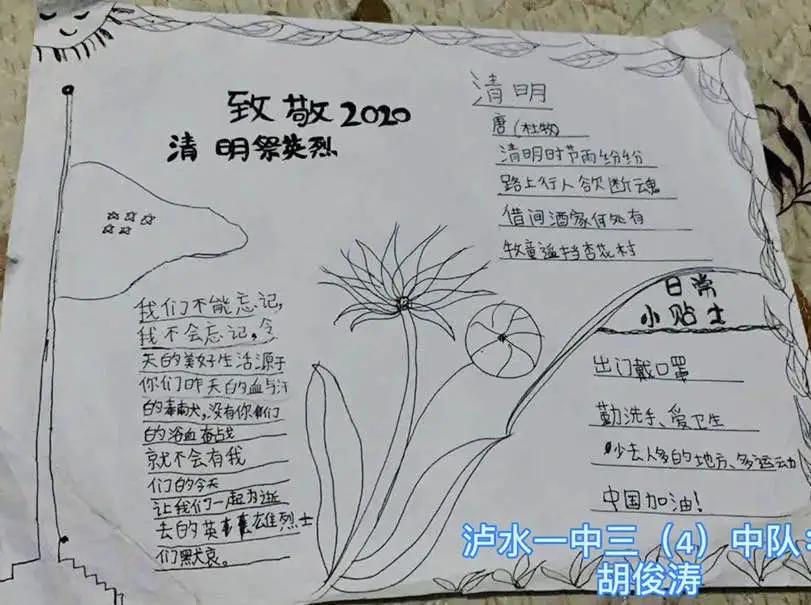 致敬2020
清明祭英烈
清明
唐(杜牧)
清明时节雨纷纷
路上行人欲断魂
借间酒家何处有
牧童遥挡杏花村
我们不能忘记,
我不会忘记,今
天的美好生活源于
你们昨天的血与汗
的奉献,没有你们
的浴血奋战
就不会有我
们的今天
让我们一起为逝
去的英雄烈士
们默哀。
日常
小贴士
出门戴口罩
勤洗手、爱卫生
少去人多的地方、多运动
中国加油!
泸水一中三(4)中队:
胡俊涛